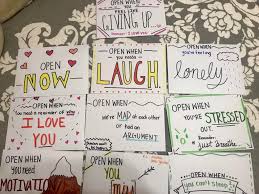 you feel like
GIVING UP
OPEN
NOW
I LOVE
YOU
OPEN WHEN
you need a
LAUGH
OPEN WHEN
you're feeling
lonely
OPEN WHEN
we're MAD at each other
or had an
ARGUMENT
OPEN WHEN
YOU'RE
STRESSED
OUT.
Remember:
just breathe
OPEN WHEN
you need
MOTIVATION
OPEN WHEN
YOU
miss
OPEN WHEN
you can't sleep